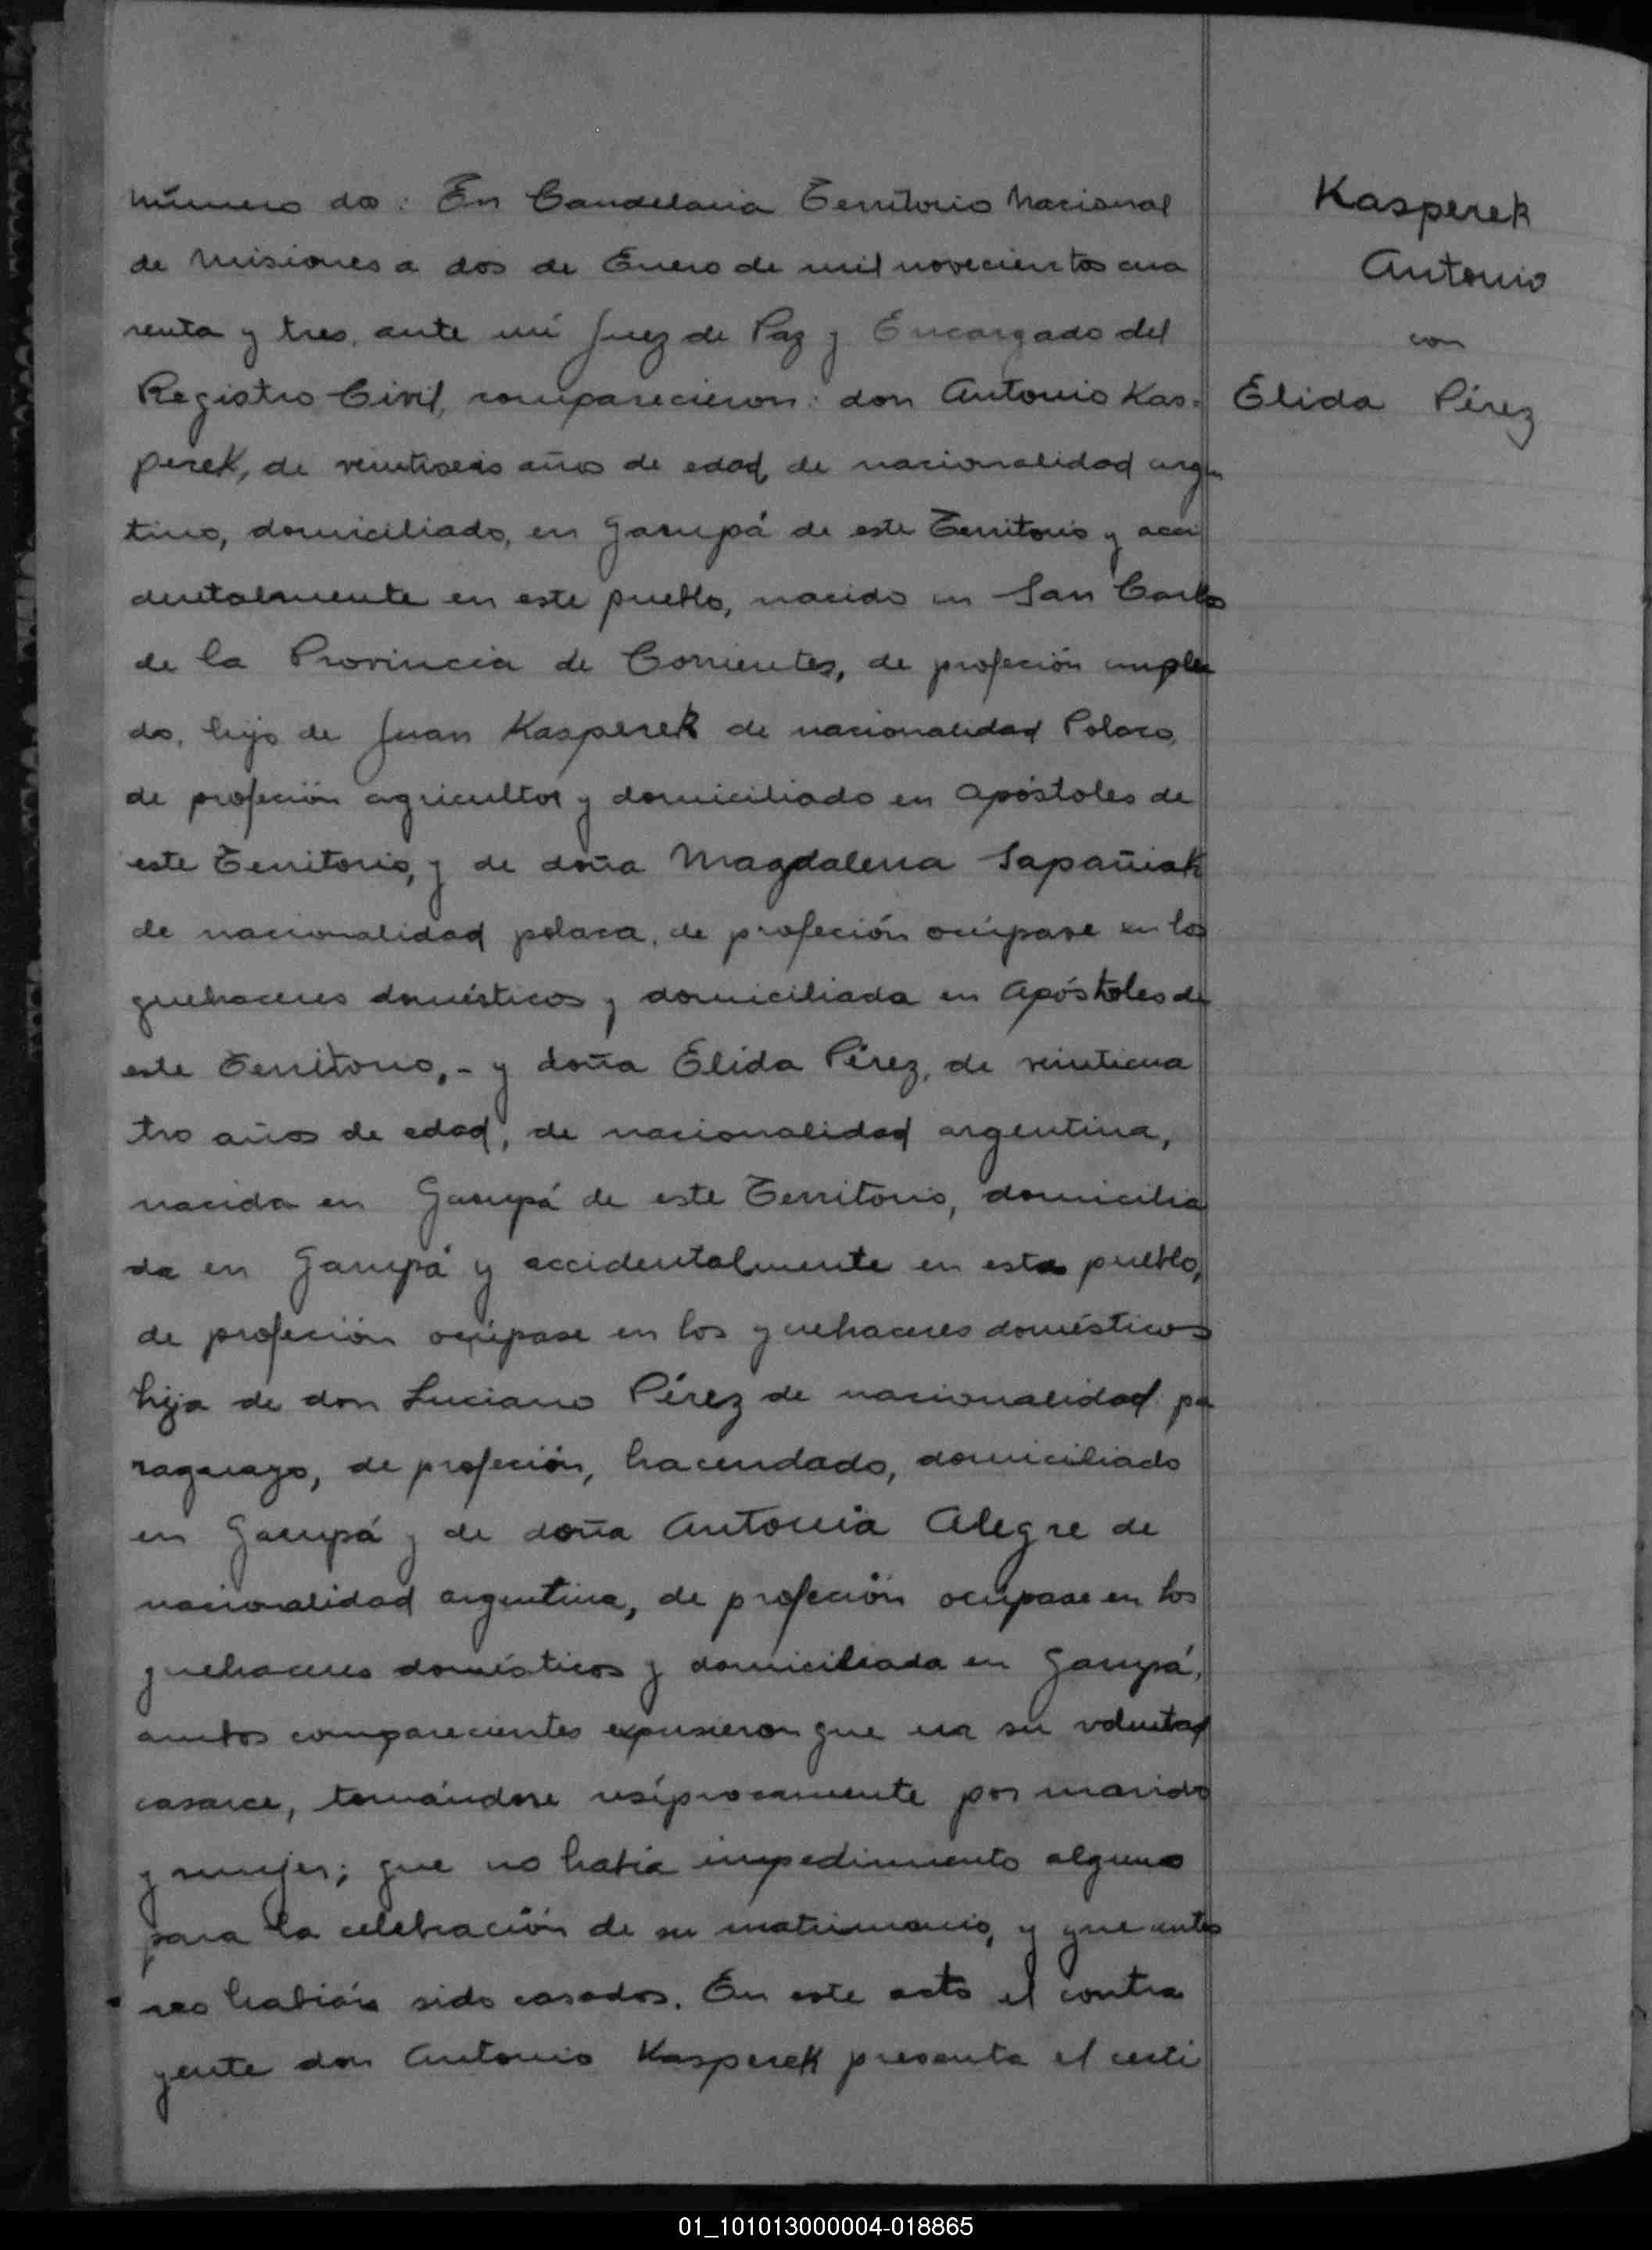 Número dos: En Candelaria Territorio Nacional
de Misiones a dos de Enero de mil novecientos cua
renta y tres, ante mí Juez de Paz y Encargado del
Registro Civil, comparecieron: don Antonio Kas-
perek, de veintiseis años de edad, de nacionalidad argen
tino, domiciliado, en Garupá de este Territorio y acci
dentalmente en este pueblo, nacido en San Carlos
de la Provincia de Corrientes, de profeción emplea
do, hijo de Juan Kasperek de nacionalidad Polaco,
de profeción agricultor y domiciliado en Apóstoles de
este Territorio, y de doña Magdalena Sapañiak
de nacionalidad polaca, de profeción ocúpase en los
quehaceres domésticos y domiciliada en Apóstoles de
este Territorio,- y doña Élida Pérez, de veinticua
tro años de edad, de nacionalidad argentina,
nacida en Garupá de este Territorio, domicilia
da en Garupá y accidentalmente en este pueblo,
de profeción ocúpase en los quehaceres domésticos
hija de don Luciano Pérez de nacionalidad pa
raguayo, de profeción, hacendado, domiciliado
en Garupá y de doña Antonia Alegre de
nacionalidad argentina, de profeción ocúpase en los
quehaceres domésticos y domiciliada en Garupá,
ambos comparecientes expusieron que era su voluntad
casarce, tomándose resíprocamente por marido
y mujer; que no había impedimento alguno
para la celebración de su matrimonio, y que antes
no habían sido casados. En este acto el contra
yente don Antonio Kasperek presenta el certi
Kasperek
Antonio
con
Élida Pérez
01_101013000004-018865